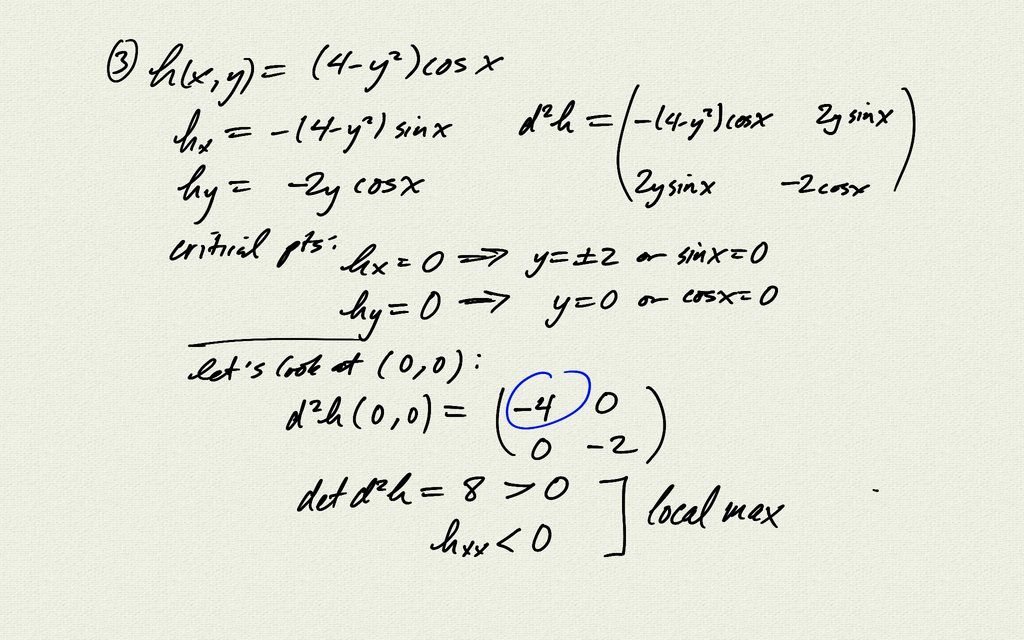 ③ h(x,y) = (4-y²)cosx
hx = -(4-y²) sinx
hy = -2y cosx
d²h = ( -(4-y²)cosx 2y sinx
2y sinx -2cosx )
critical pts: hx = 0 ⇒ y = ±2 or sinx = 0
hy = 0 → y = 0 or cosx = 0
let's look at (0,0):
d²h(0,0) = ( -4 0
0 -2 )
det d²h = 8 > 0
hxx < 0 ] local max